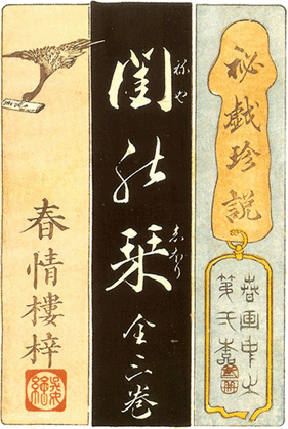 秘戯珍説
春画中之
閨能栞
ねや
全三巻
春情樓梓